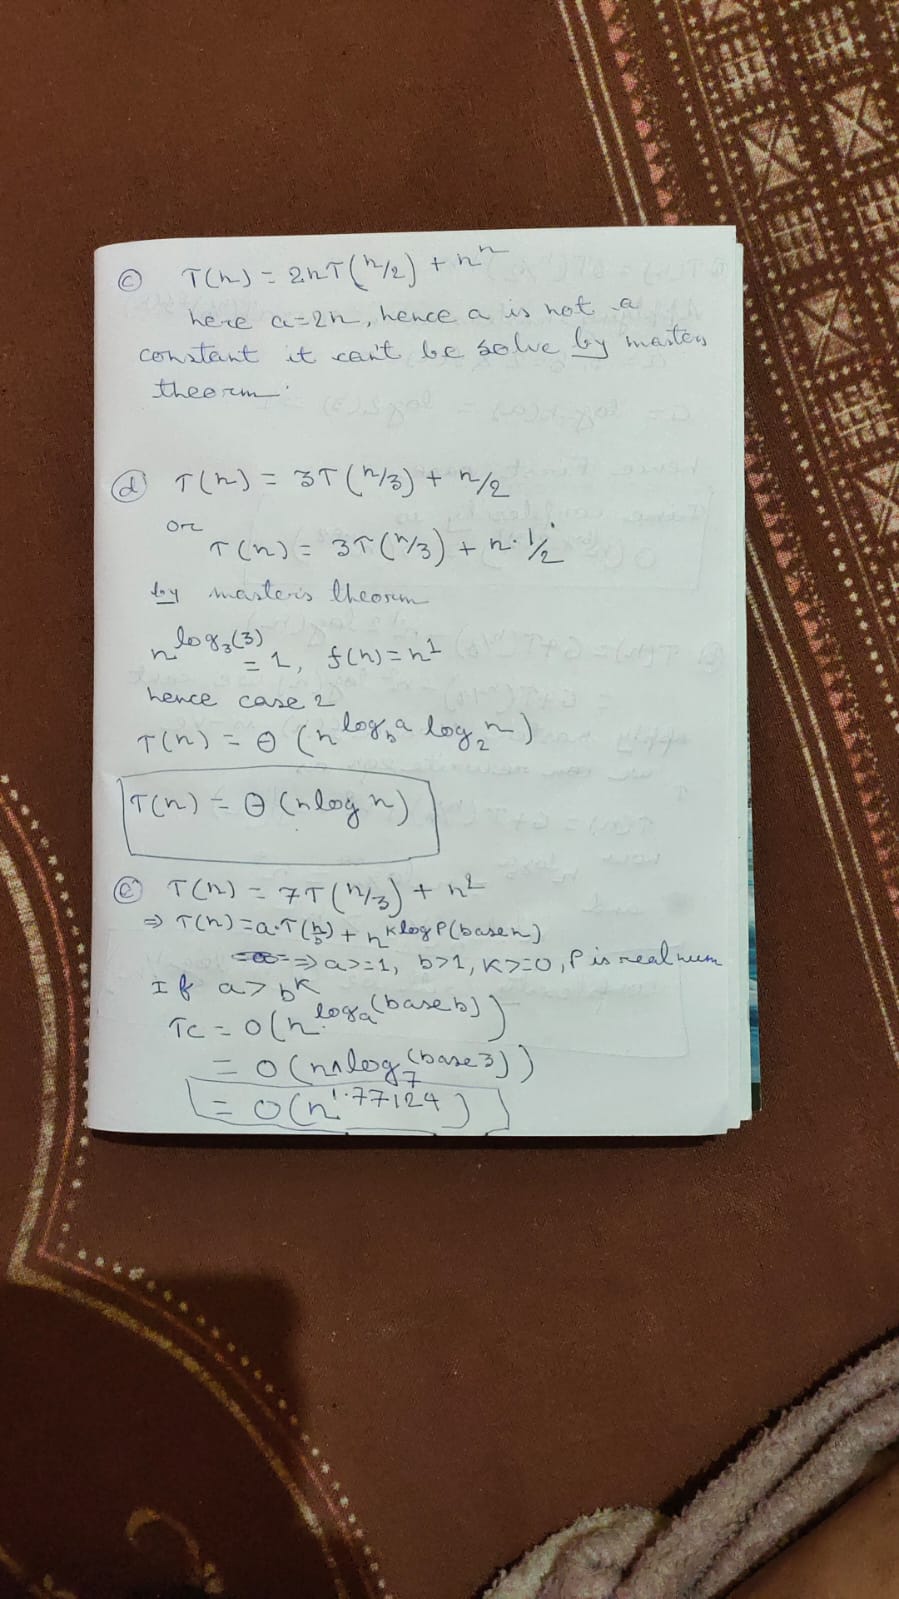 (c) T(n) = 2nT(n/2) + n^n
here a=2n, hence a is not a
constant it can't be solve by masters
theorm.
(d) T(n) = 3T(n/3) + n/2
or
T(n) = 3T(n/3) + n·1/2
by master's theorm
n^log₃(3) = 1, f(n) = n^1
hence case 2
T(n) = Θ(n^log_b a log₂n)
T(n) = Θ(nlog n)
(e) T(n) = 7T(n/3) + n^2
⇒ T(n)=a·T(n/b) + n^klogP(base n)
⇒ a>=1, b>1, K>=0, P is real num
If a> b^K
TC = O(n^log a (base b))
= O(n^log 7 (base 3))
= O(n^1.77124)